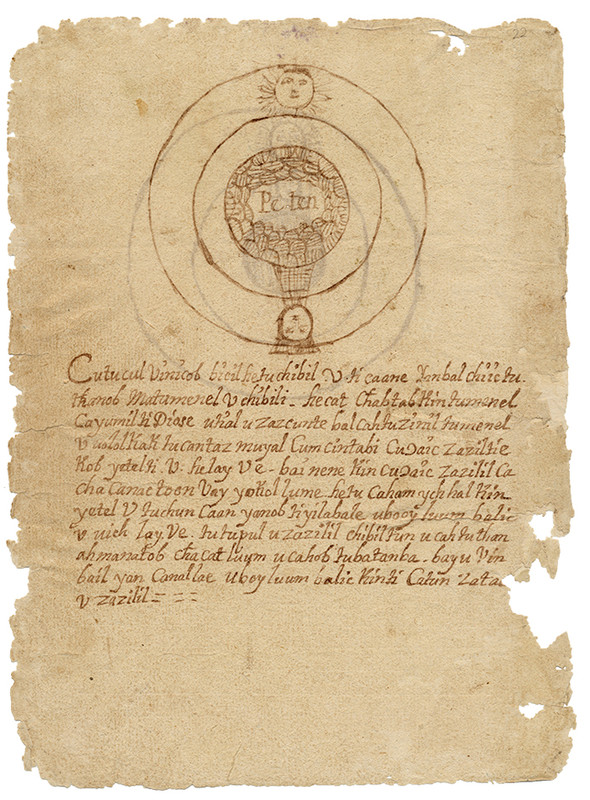 22
Peten
Cutucul Vinicob bicil hetu chibil V ti caane tanbal chiic tu.
thanob Matumenel V chibili - he cat Chabtab Kin tumenel
Cayumil ti Diose utial u zazcunte balcah tuzinil tumenel
V uolol Kak tu cantaz muyal Cumcintabi Cu Ɔaic zaziltie
Kob yetel ti V. he lay Ve - bai nene Kin cu Ɔaic zazilil Ca
cha Canac toon Vay yokol lume hetu Caham ych hal Kin
yetel V tuchun Caan yanob ti yilabale u booy luum balic
v uich lay Ve. tu tupul u zazilil chibil tun u cah tu than
ah manatob cha cat luum u cahob tubatanba - bay u Vin
bail yan Canal lae u boy luum balic Kin ti Catun zata
v zazilil = = =